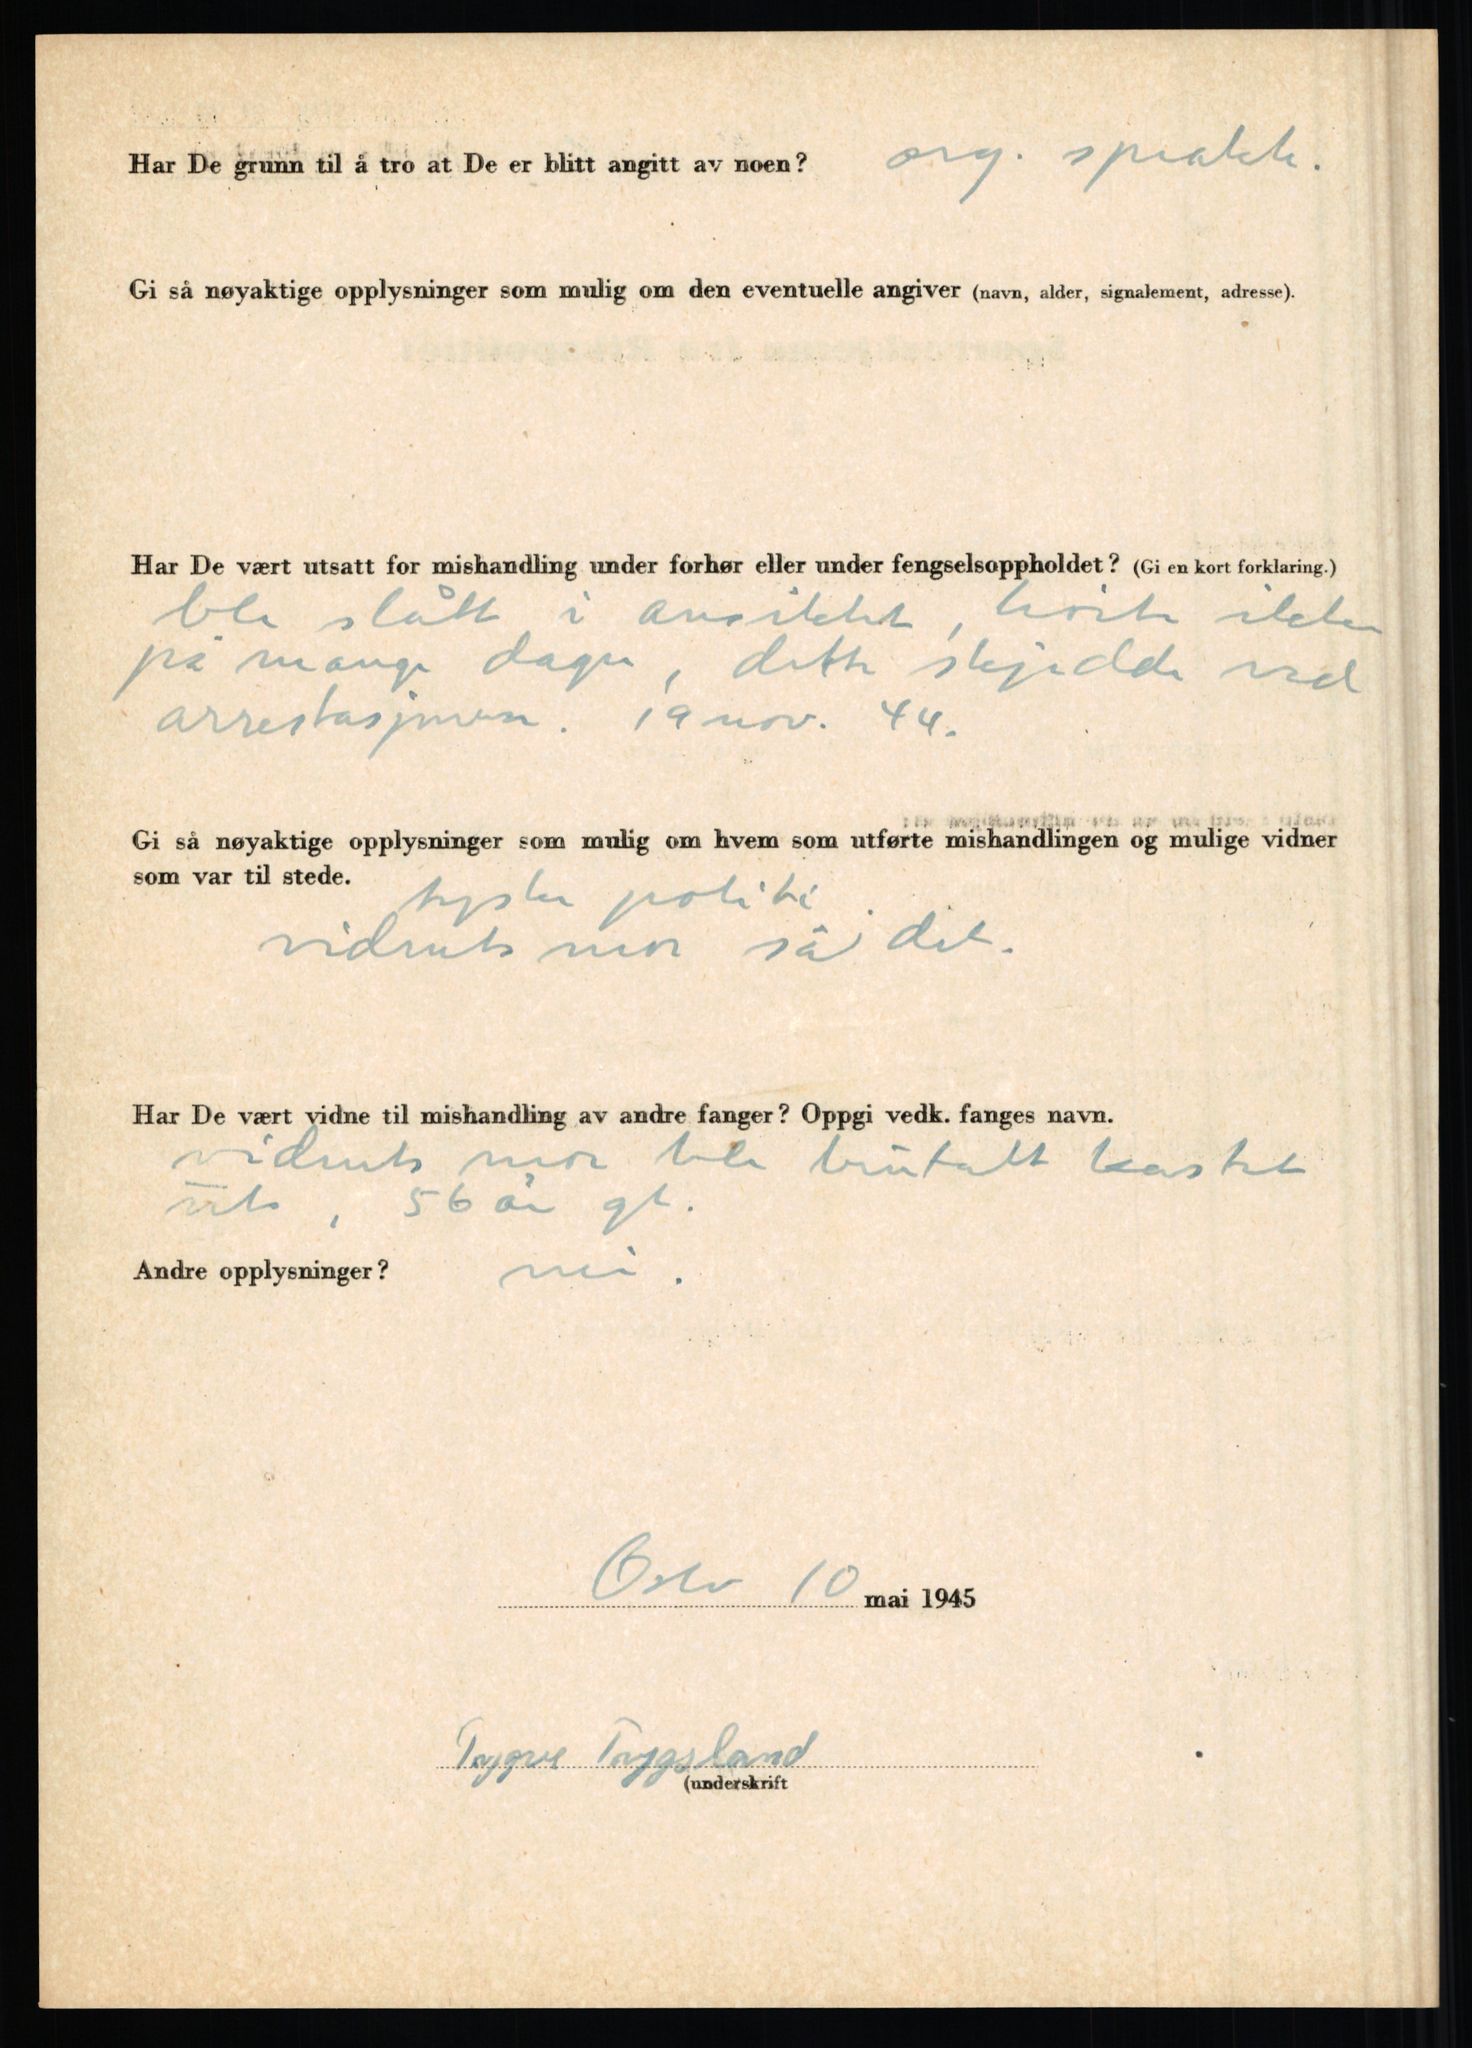 Har De grunn til å tro at De er blitt angitt av noen? org. sprakk.
Gi så nøyaktige opplysninger som mulig om den eventuelle angiver (navn, alder, signalement, adresse).
Har De vært utsatt for mishandling under forhør eller under fengselsoppholdet? (Gi en kort forklaring.)
ble slått i ansiktet, hørte ikke
på mange dager, dette skjedde ved
arrestasjonen. 19 nov. 44.
Gi så nøyaktige opplysninger som mulig om hvem som utførte mishandlingen og mulige vidner
som var til stede.
tyske politi
vidnets mor så det.
Har De vært vidne til mishandling av andre fanger? Oppgi vedk. fanges navn.
vidnets mor ble brutalt kastet
ut, 56 år gl.
Andre opplysninger? nei.
Oslo 10 mai 1945
Trygve Trygsland
(underskrift